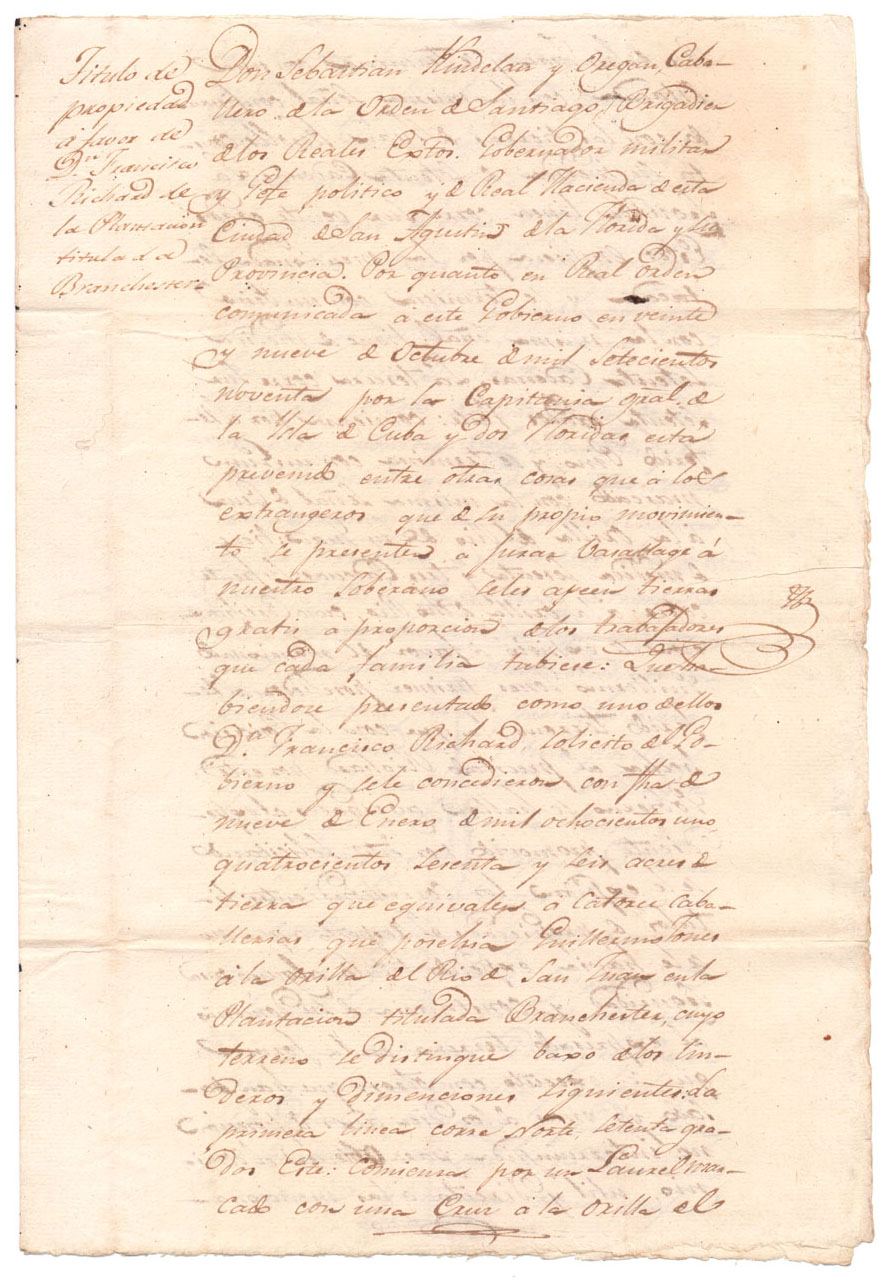 Titulo de
propiedad
á favor de
Dn. Francisco
Richard de
la Plantación
titulada de
Branchester
Don Sebastian Kindelan y Oregan, Caba-
llero de la Orden de Santiago, Brigadier
de los Reales Extos. Gobernador militar
y Gefe politico y de Real Hacienda de esta
Ciudad de San Agustin de la Florida y su
Provincia. Por quanto en Real orden
comunicada á este Gobierno en veinte
y nueve de Octubre de mil setecientos
noventa por la Capitania gral. de
la Isla de Cuba y dos Floridas esta
prevenido entre otras cosas que á los
extrangeros que de su propio movimien-
to se presenten a jurar vasallage á
nuestro Soberano se les apeen tierras
gratis a proporcion de los trabajadores
que cada familia tubiese: Que ha-
biendose presentado como uno de ellos
Dn. Francisco Richard, solicitó del Go-
bierno y se le concedieron con fha de
nueve de Enero de mil ochocientos uno,
quatrocientos sesenta y seis acres de
tierra que equivalen á catorce caba-
llerias, que poschia Guillermo Jones
á la orilla del Rio de San Juan en la
Plantacion titulada Branchester, cuyo
terreno se distingue baxo de los lin-
deros y dimenciones siguientes: La
primera linea corre Norte, setenta gra-
dos Este: Comiensa por un Laurel mar-
cado con una Cruz á la orilla del